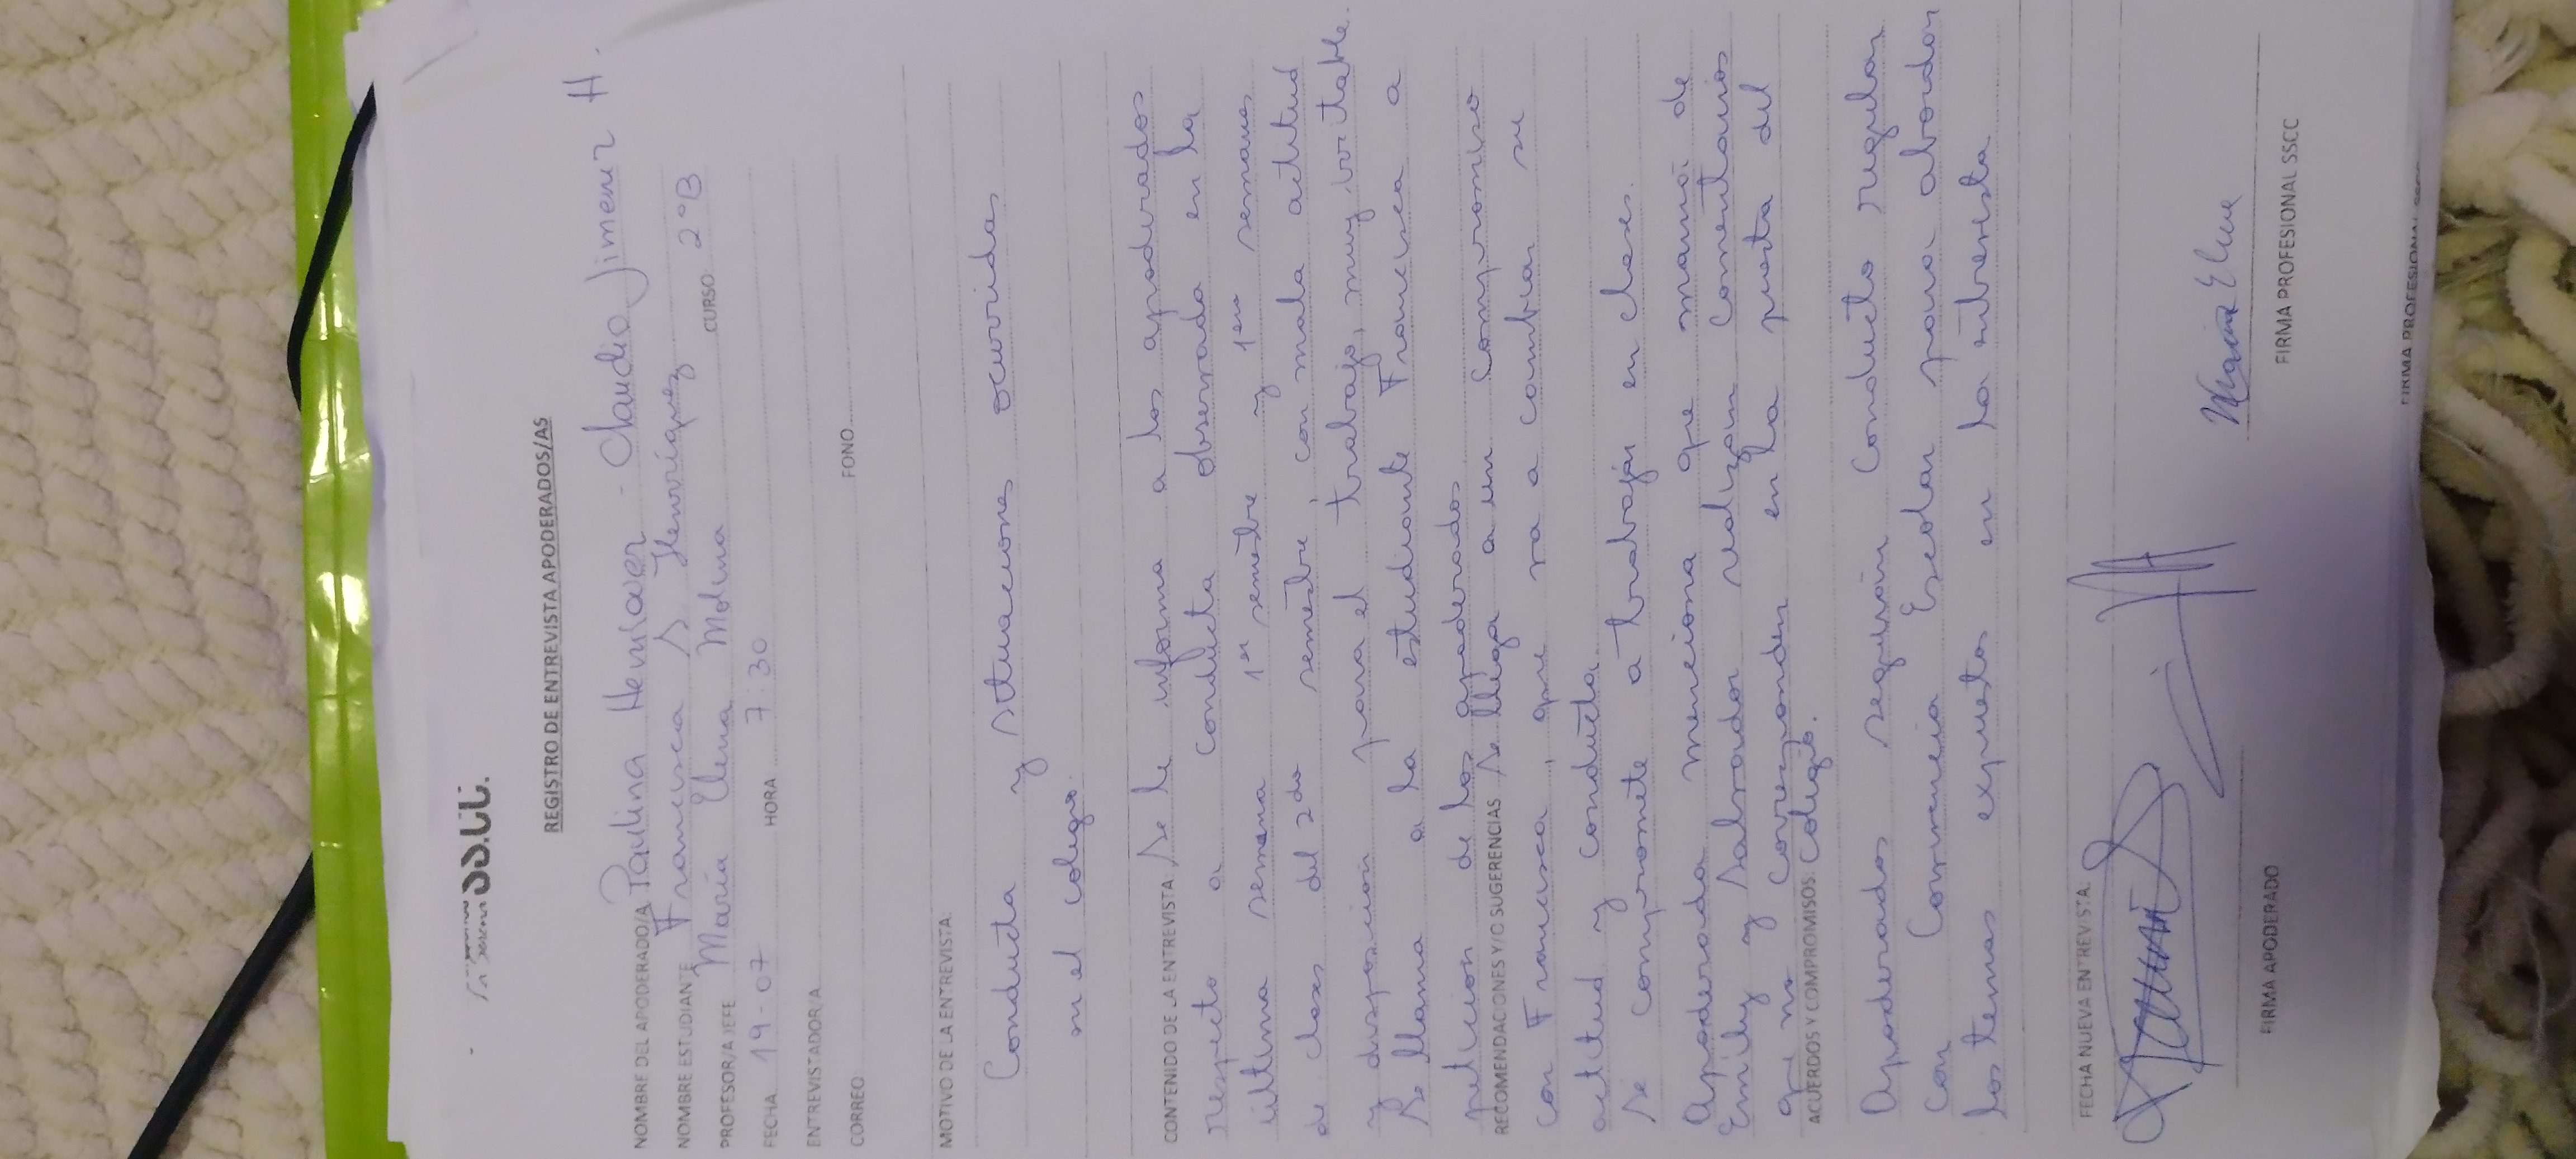 SS.CC.
REGISTRO DE ENTREVISTA APODERADOS/AS
NOMBRE DEL APODERADO/A Paulina - Claudio Jimenez H.
NOMBRE ESTUDIANTE Francisca S Henríquez
PROFESOR/A JEFE María Elena Molina CURSO 2°B
FECHA 19-07 HORA 7:30
ENTREVISTADOR/A
CORREO FONO
MOTIVO DE LA ENTREVISTA:
Conducta y situaciones ocurridas
en el colegio.
CONTENIDO DE LA ENTREVISTA: Se le informa a los apoderados
respecto a conducta observada en la
última semana 1er semestre y 1era semana
de clases del 2do semestre, con mala actitud
y disposición para el trabajo, muy irritable.
Se llama a la estudiante Francisca a
petición de los apoderados
RECOMENDACIONES Y/O SUGERENCIAS Se llega a un compromiso
con Francisca, que va a cambiar su
actitud y conducta.
Se compromete a trabajar en clases.
Apoderada menciona que mamá de
Emily y Salvador realizan comentarios
que no corresponden en la puerta del
ACUERDOS Y COMPROMISOS: Colegio.
Apoderados seguirán conducto regular
con Convivencia Escolar para abordar
los temas expuestos en la entrevista.
FECHA NUEVA ENTREVISTA:
María Elena
FIRMA APODERADO FIRMA PROFESIONAL SSCC
FIRMA PROFESIONAL SSCC